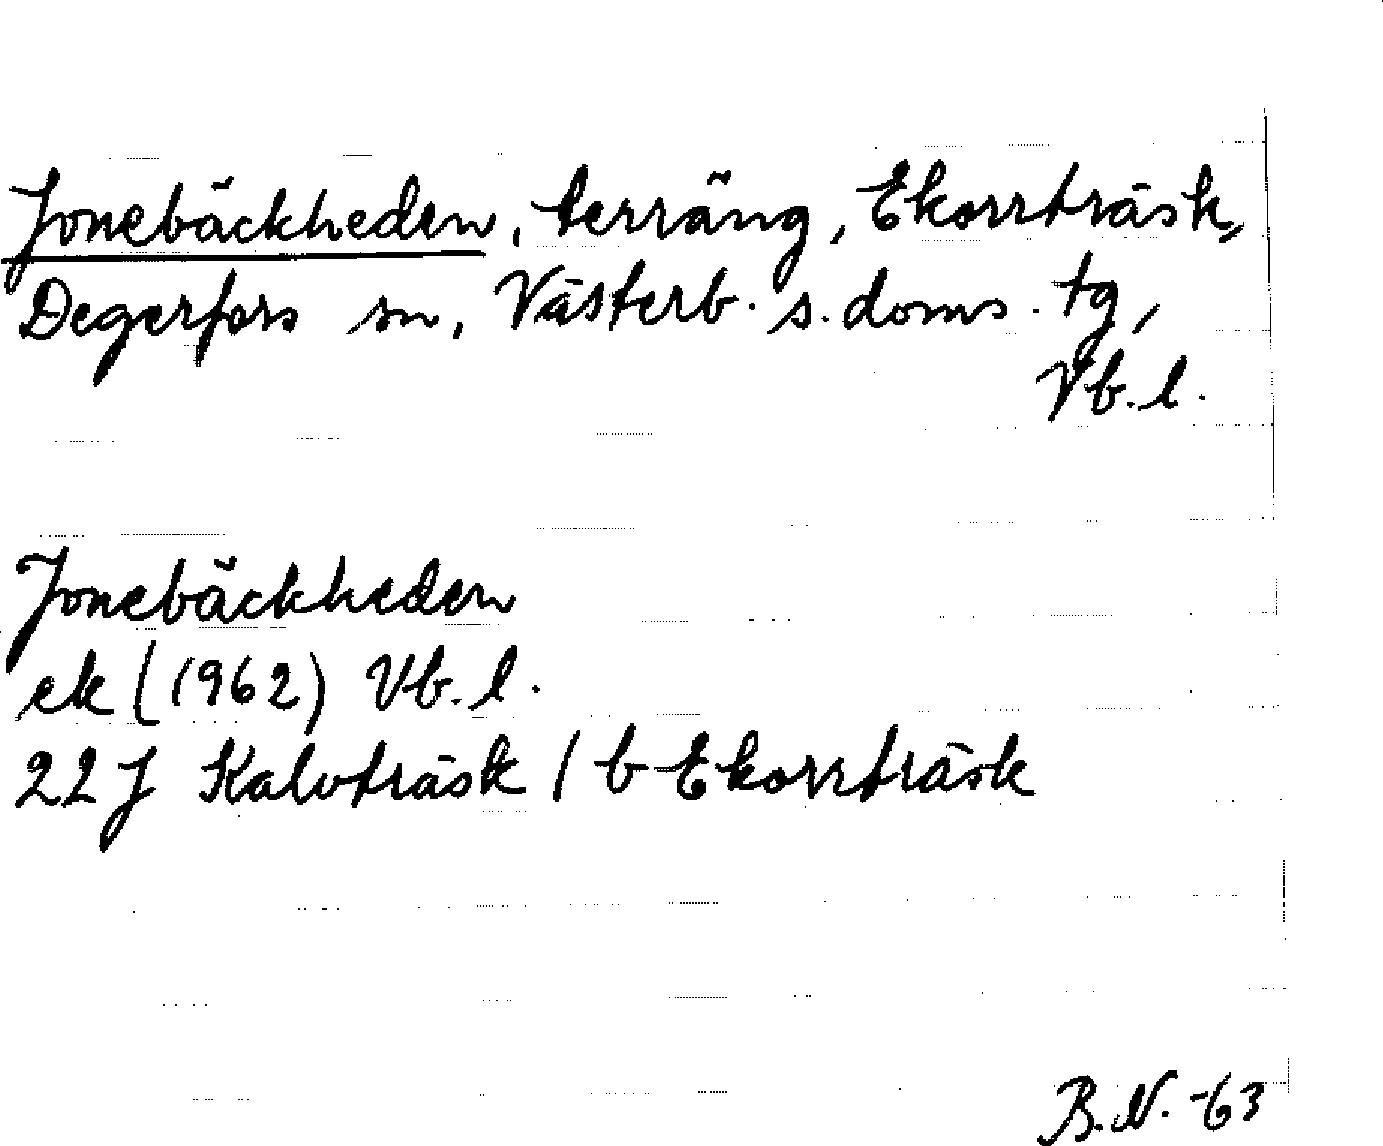 Jonebäckheden, terräng, Ekorrträsk,
Degerfors sn, Västerb. s. doms. tg,
Vb. l.
Jonebäckheden
ek (1962) Vb. l.
22J Kalvträsk / b Ekorrträsk
B.N. -63